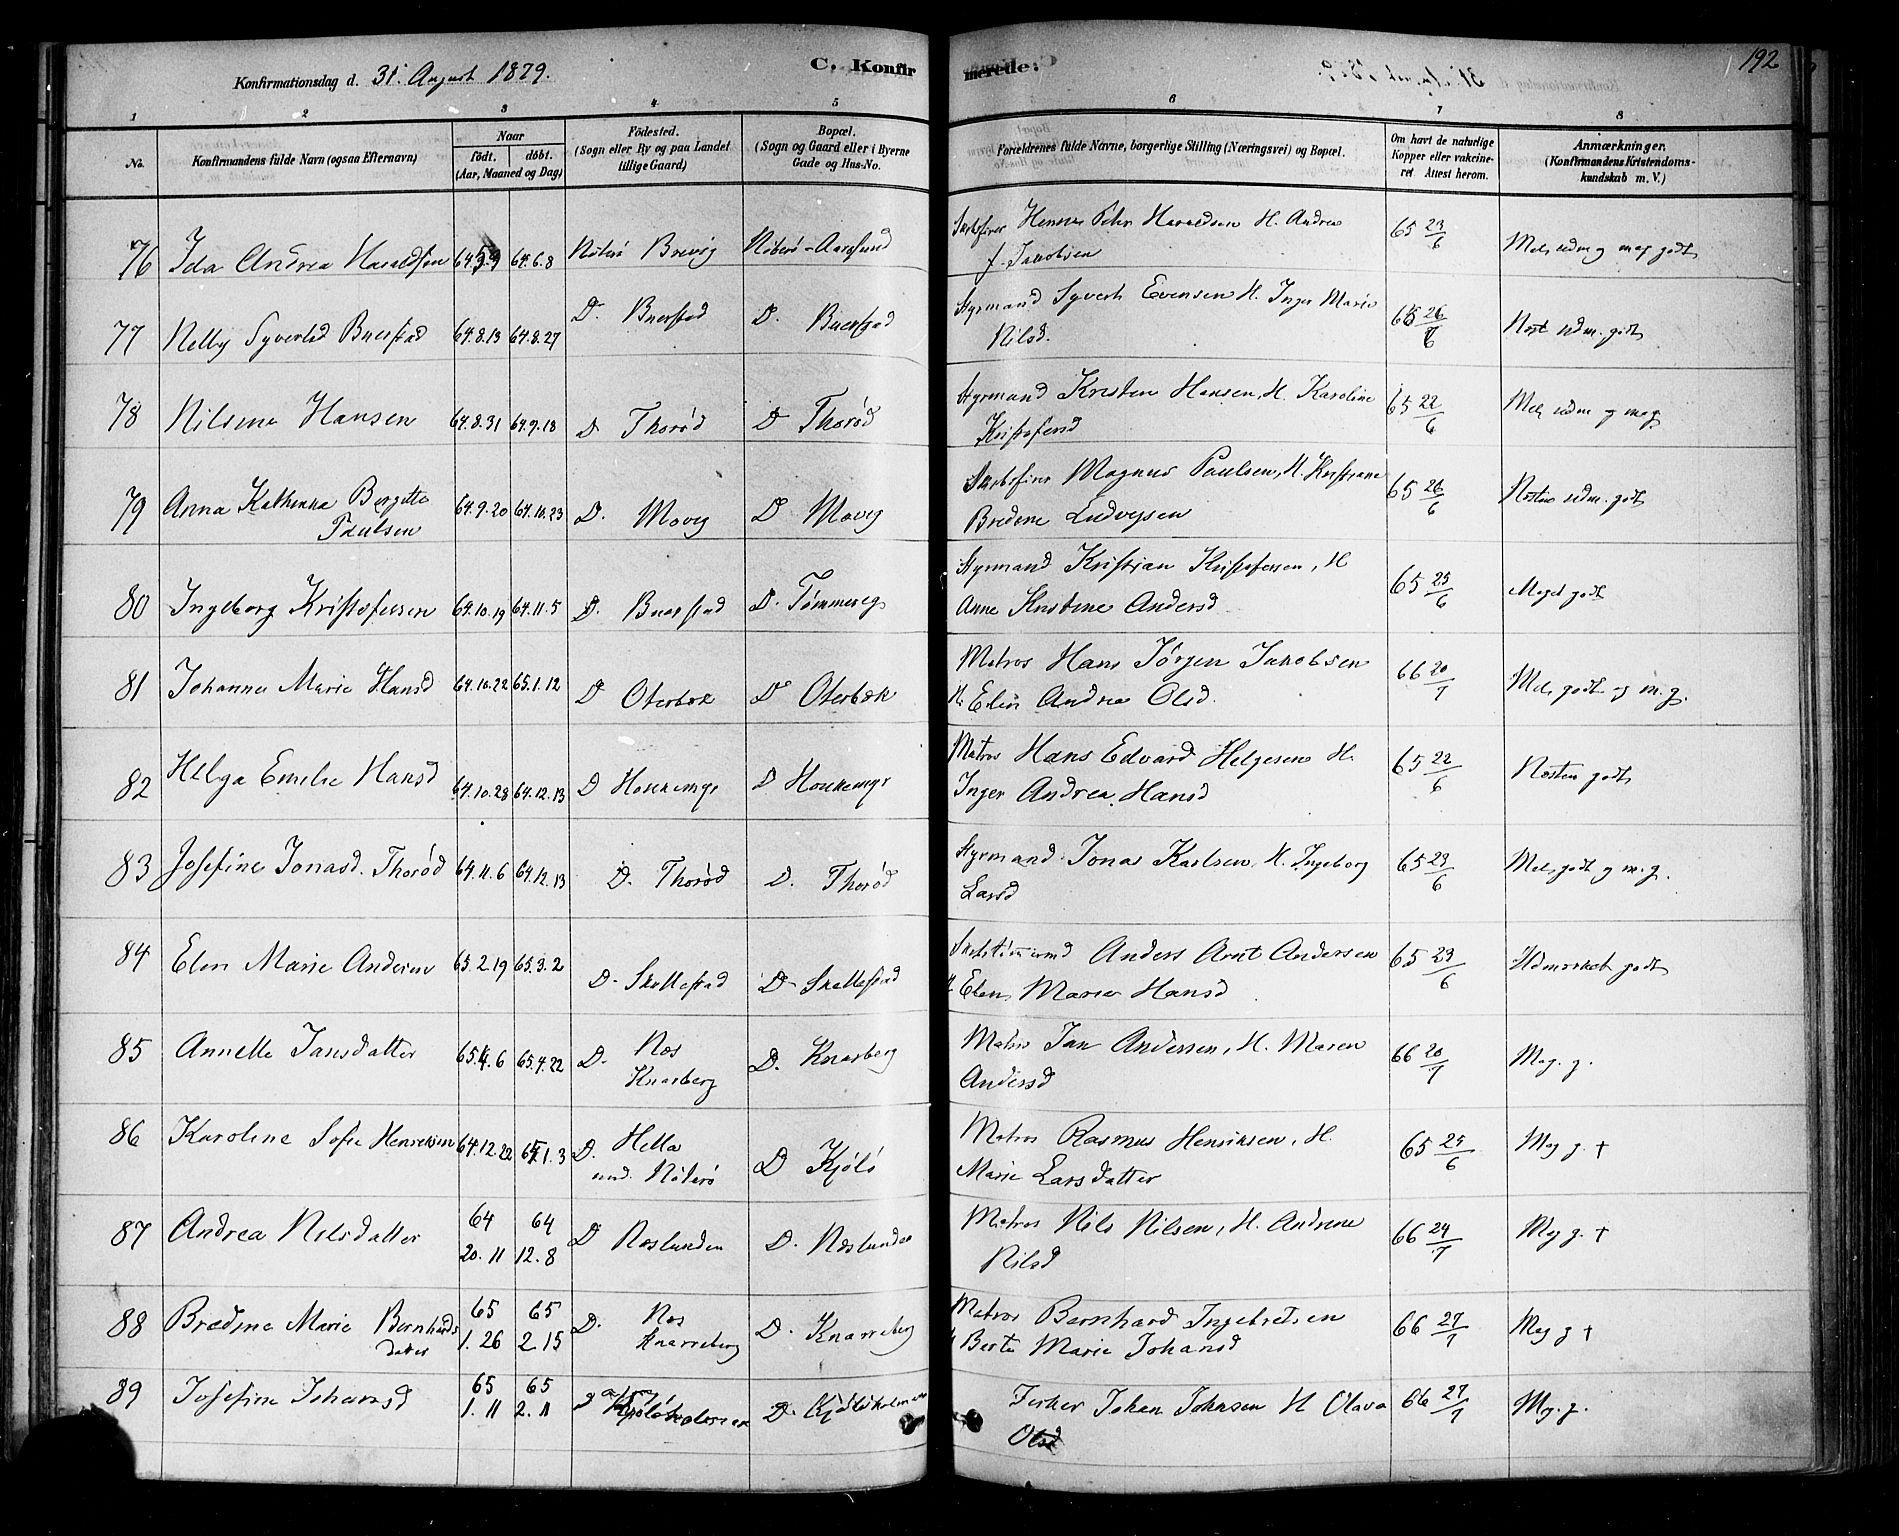 Konfirmationsdag d. 31. August 1879.
C. Konfir
merede:
192
1 2 3 4 5 6 7 8
No.
Konfirmandens fulde Navn (ogsaa Efternavn)
Naar
födt. döbt.
(Aar, Maaned og Dag)
Födested.
(Sogn eller By og paa Landet
tillige Gaard)
Bopæl.
(Sogn og Gaard eller i Byerne
Gade og Hus-No.
Forældrenes fulde Navne, borgerlige Stilling (Næringsvei) og Bopæl.
Om havt de naturlige
Kopper eller vakcine-
ret Attest herom.
Anmærkninger.
(Konfirmandens Kristendoms-
kundskab m. V.)
76 Ida Andrea Haraldsen 64.6.8 Nöterö Brevig Nöterö-Aarøsund Hennes Peter Haraldsen H. Andrea 65 23/6
f. Jacobsen
77 Nelly Syvertsd Buerstad 64.8.13 64.8.27 D. Buerstad D. Buerstad Styrmand Syvert Evensen H. Inger Marie 65 26/6 Næst udm. godt
Nilsd.
78 Nilsine Hansen 64.8.31 64.9.18 D Thoröd D Thoröd Styrmand Kristen Hansen, H. Karoline 65 22/6 Mel. udm og meg
Kristofersd
79 Anna Kathrina Bergitte 64.9.20 64.10.23 D. Movig D Movig Magnus Paulsen, H. Kristiane 65 26/6 Næsten udm. godt
Paulsen Bredine Ludvigsen
80 Ingeborg Kristofersen 64.10.19 64.11.5 D. Buerstad D. Tömmereg Styrmand Kristian Kristofersen, H 65 25/6 Meget godt
Anne Kristine Andersd
81 Johanna Marie Hansd 64.10.22 65.1.12 D Oterbæk D Oterbæk Matros Hans Jörgen Jakobsen 66 20/7 Mel. godt og m.g.
H. Elin Andrea Olsd.
82 Helga Emelie Hansd 64.10.28 64.12.13 D D Matros Hans Edvard Helgesen H. 65 22/6 Næsten godt
Inger Andrea Hansd
83 Josefine Jonasd. Thoröd 64.11.6 64.12.13 D. Thoröd D. Thoröd Styrmand Jonas Karlsen, H. Ingeborg 65 23/6 Mel. godt og m.g.
Larsd
84 Elen Marie Andersen 65.2.19 65.3.2 D- Skallestad D- Skallestad Anders Arnt Andersen 65 23/6 Udmærket godt
H Elen Marie Hansd
85 Annette Jansdatter 65.4.6 65.4.22 D. Næs D. Knarberg Matros Jan Andersen, H. Maren 66 20/7 Meg. g.
Knarberg Andersd
86 Karoline Sofie Henriksen 64.12.22 65.1.3 D. Hella D Kjölö Matros Rasmus Henriksen, H. 65 25/6 Meg g. +
und. Nöterö Marie Larsdatter
87 Andrea Nilsdatter 64 64 D Næslunden D. Næslunden Matros Nils Nilsen, H. Andrine 66 24/7 Meg g. +
20.11 12.8 Nilsd
88 Bredine Marie Bernhards 65 65 D. Næs D. Knarreberg Matros Bernhard Ingebretsen 66 27/7 Meg g +
datter 1.26 2.15 Knarreberg H Berte Marie Johansd
89 Josefine Johansd 65 65 D Kjölöholmen D. Kjölöholmen Fisker Johan Johnsen H Olava 66 27/7 Mg. g.
1.11 2.11 Olsd